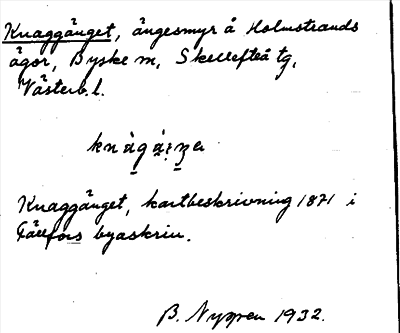 Knaggänget, ängesmyr å Holmstrands
ägor, Byske m, Skellefteå tg,
Västerb. l.
Knaggänget, kartbeskrivning 1871 i
Fällfors byaskrin.
B. Nygren 1932.